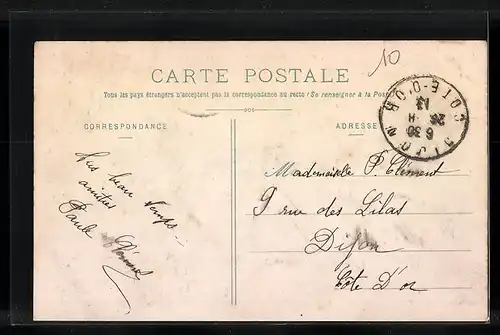 10
CARTE POSTALE
Tous les pays étrangers n'acceptent pas la correspondance au recto (Se renseigner à la Poste)
CORRESPONDANCE
ADRESSE
DIJON
COTE-D'OR
6 30
26
13
Mademoiselle P. Clément
9 rue des Lilas
Dijon
Côte D'or
beau temps
amitiés
Paule